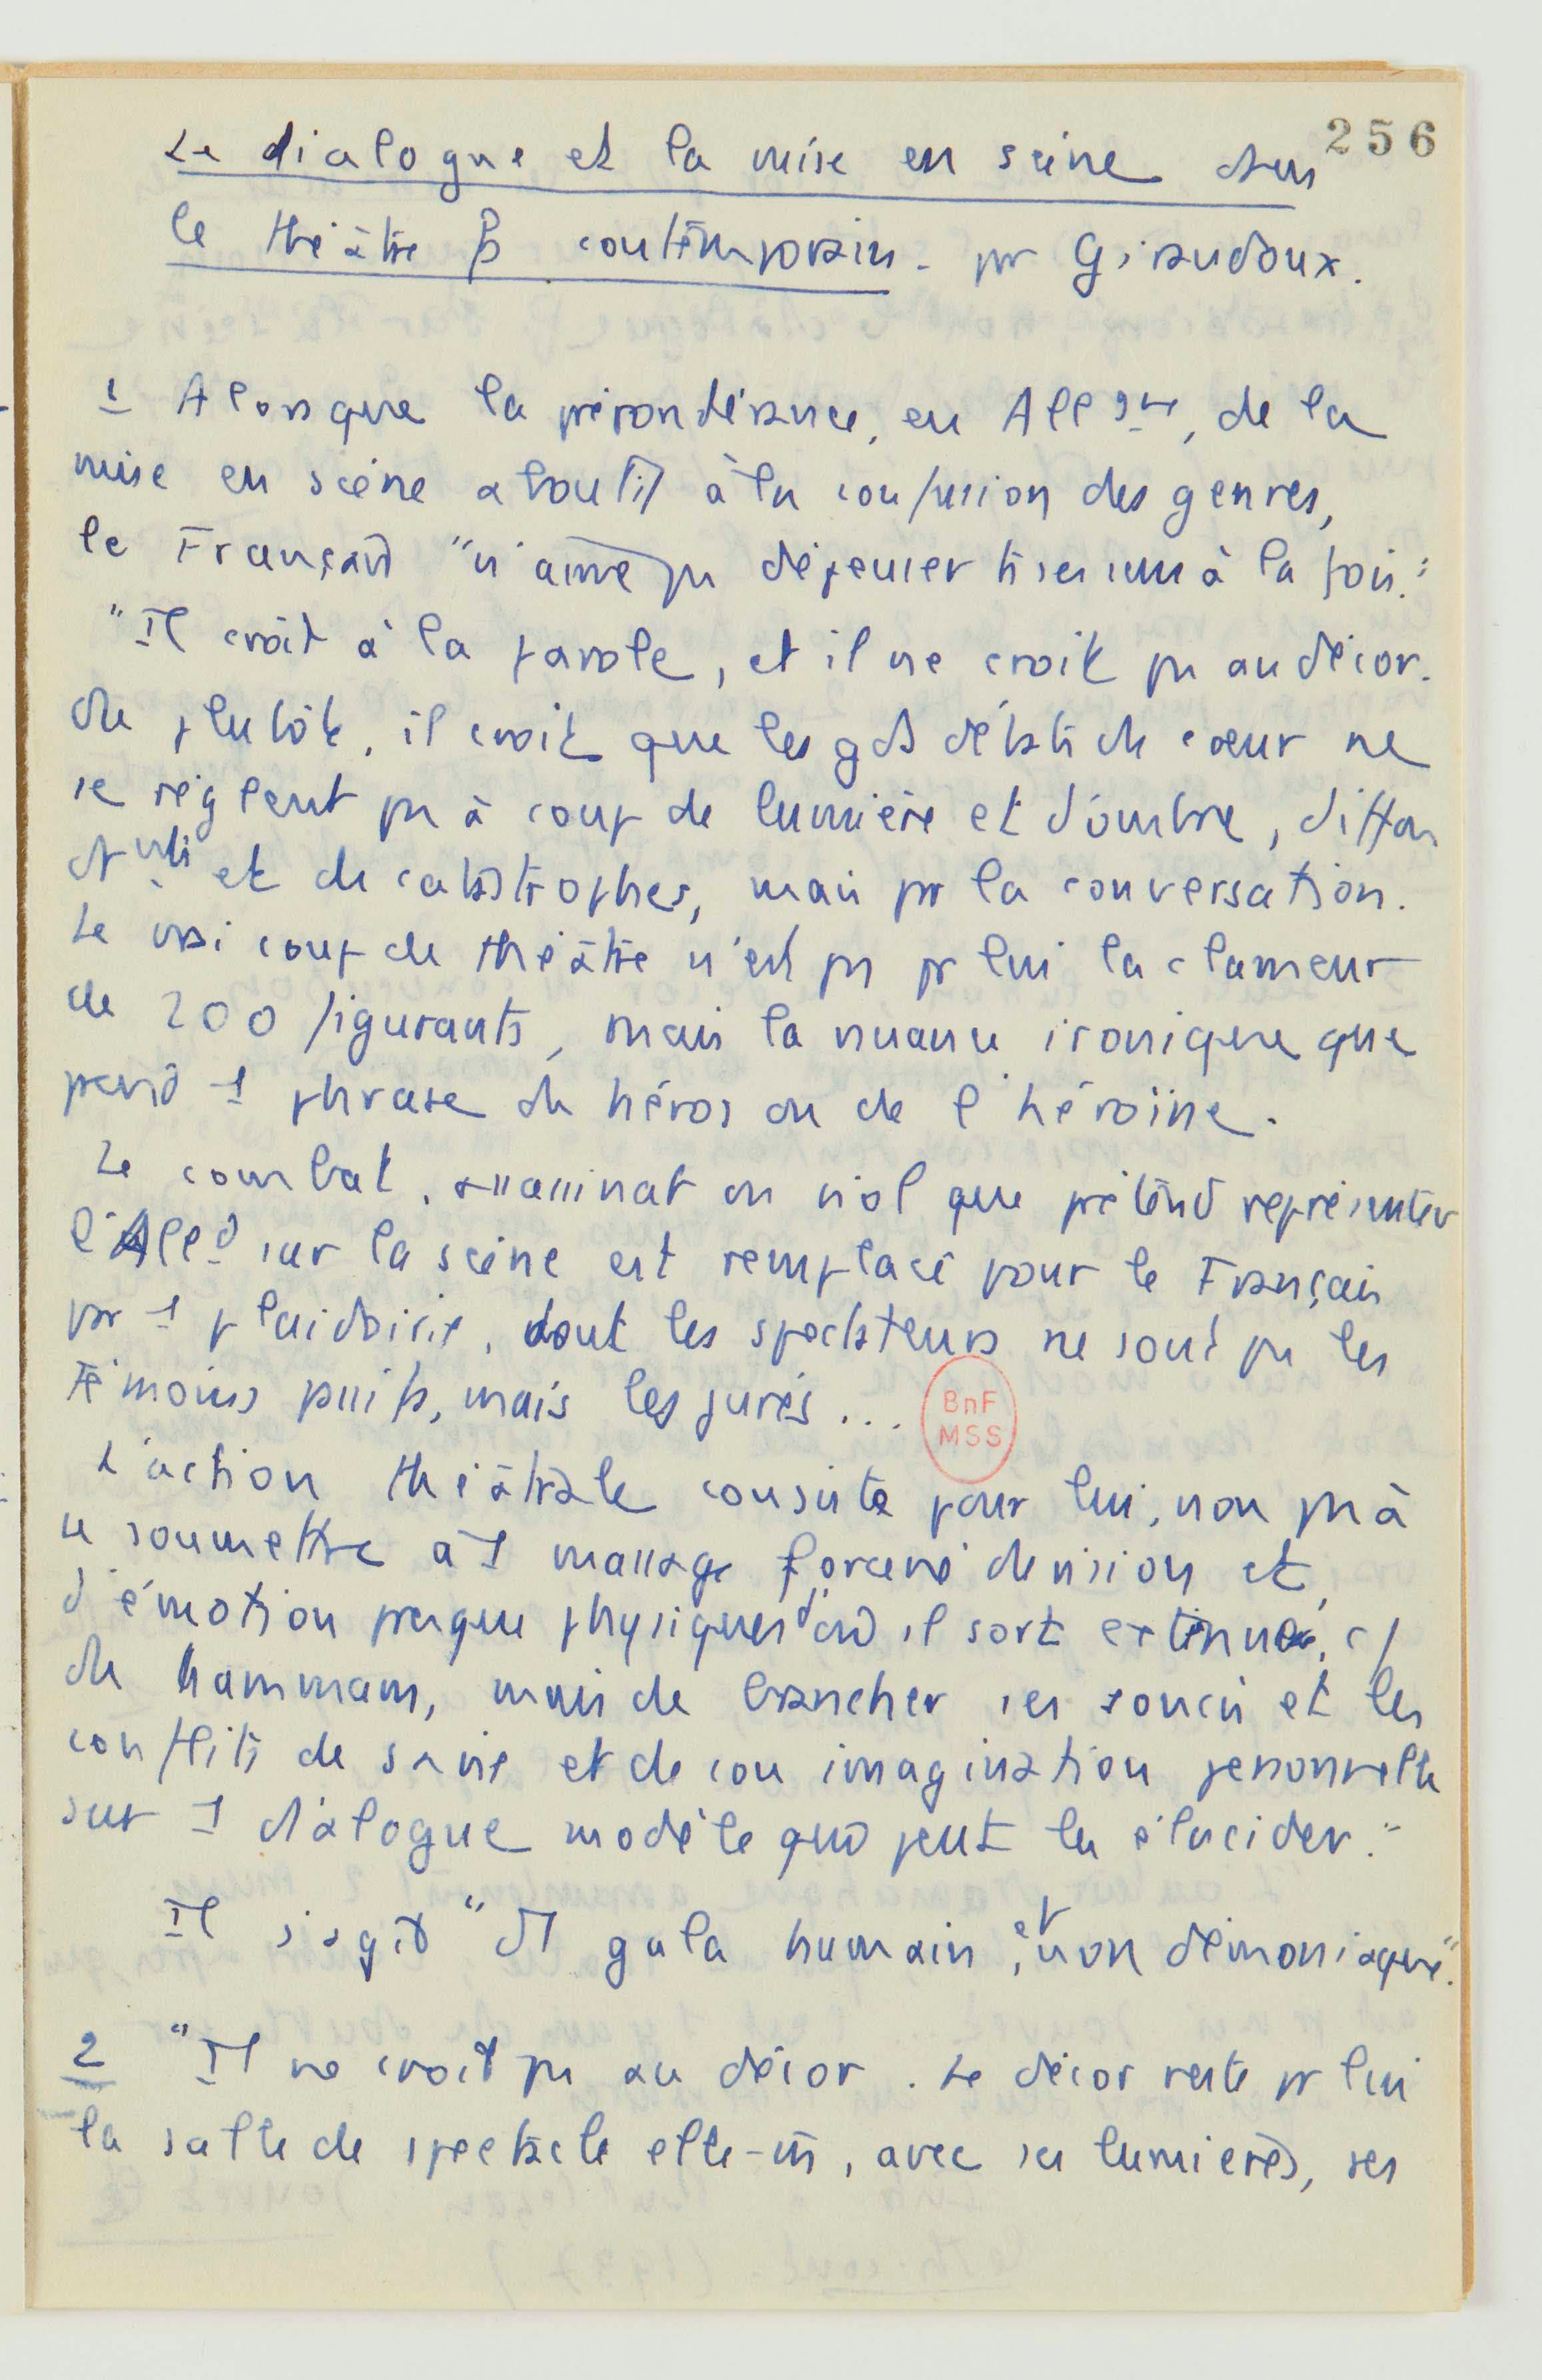 256
Le dialogue et la mise en scène dans
le théâtre contemporain - pr Giraudoux.
1 Alors que la prépondérance, en Allgne, de la
mise en scène aboutit à la confusion des genres,
le Français "n'aime pas déjeuner ts ses sens à la fois."
"Il croit à la parole, et il ne croit pas au décor.
Ou plutôt, il croit que les gds débats du cœur ne
se règlent pas à coup de lumière et d'ombre,
et de catastrophes, mais pr la conversation.
Le vrai coup de théâtre n'est pas pr lui la clameur
de 200 figurants, mais la nuance ironique que
prend 1 phrase du héros ou de l'héroïne.
Le combat, assassinat ou viol que prétend représenter
l'Alld sur la scène est remplacé pour le Français
par 1 plaidoirie, dont les spectateurs ne sont pas les
témoins passifs, mais les jurés...
BnF
MSS
L'action théâtrale consiste pour lui, non pas à
se soumettre à 1 massage forcené de vision et
d'émotion presque physiques d'où il sort exténué, cf
du hammam, mais de brancher ses soucis et les
conflits de sa vie et de son imagination personnelle
sur 1 dialogue modèle qui peut les élucider."
Il s'agit "d'1 gala humain, et non démoniaque".
2 "Il ne croit pas au décor. Le décor reste pr lui
la salle de spectacle elle-m̄, avec ses lumières, ses